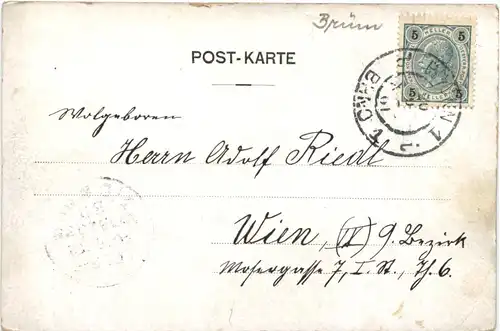 Brünn
5 HELLER 5
POST-KARTE
5 HELLER 5
BRNO
1
Wolgeboren
Herrn Adolf Riedl
Wien, (IX) 9. Bezirk
Mosergasse 7, I. St., Th. 6.